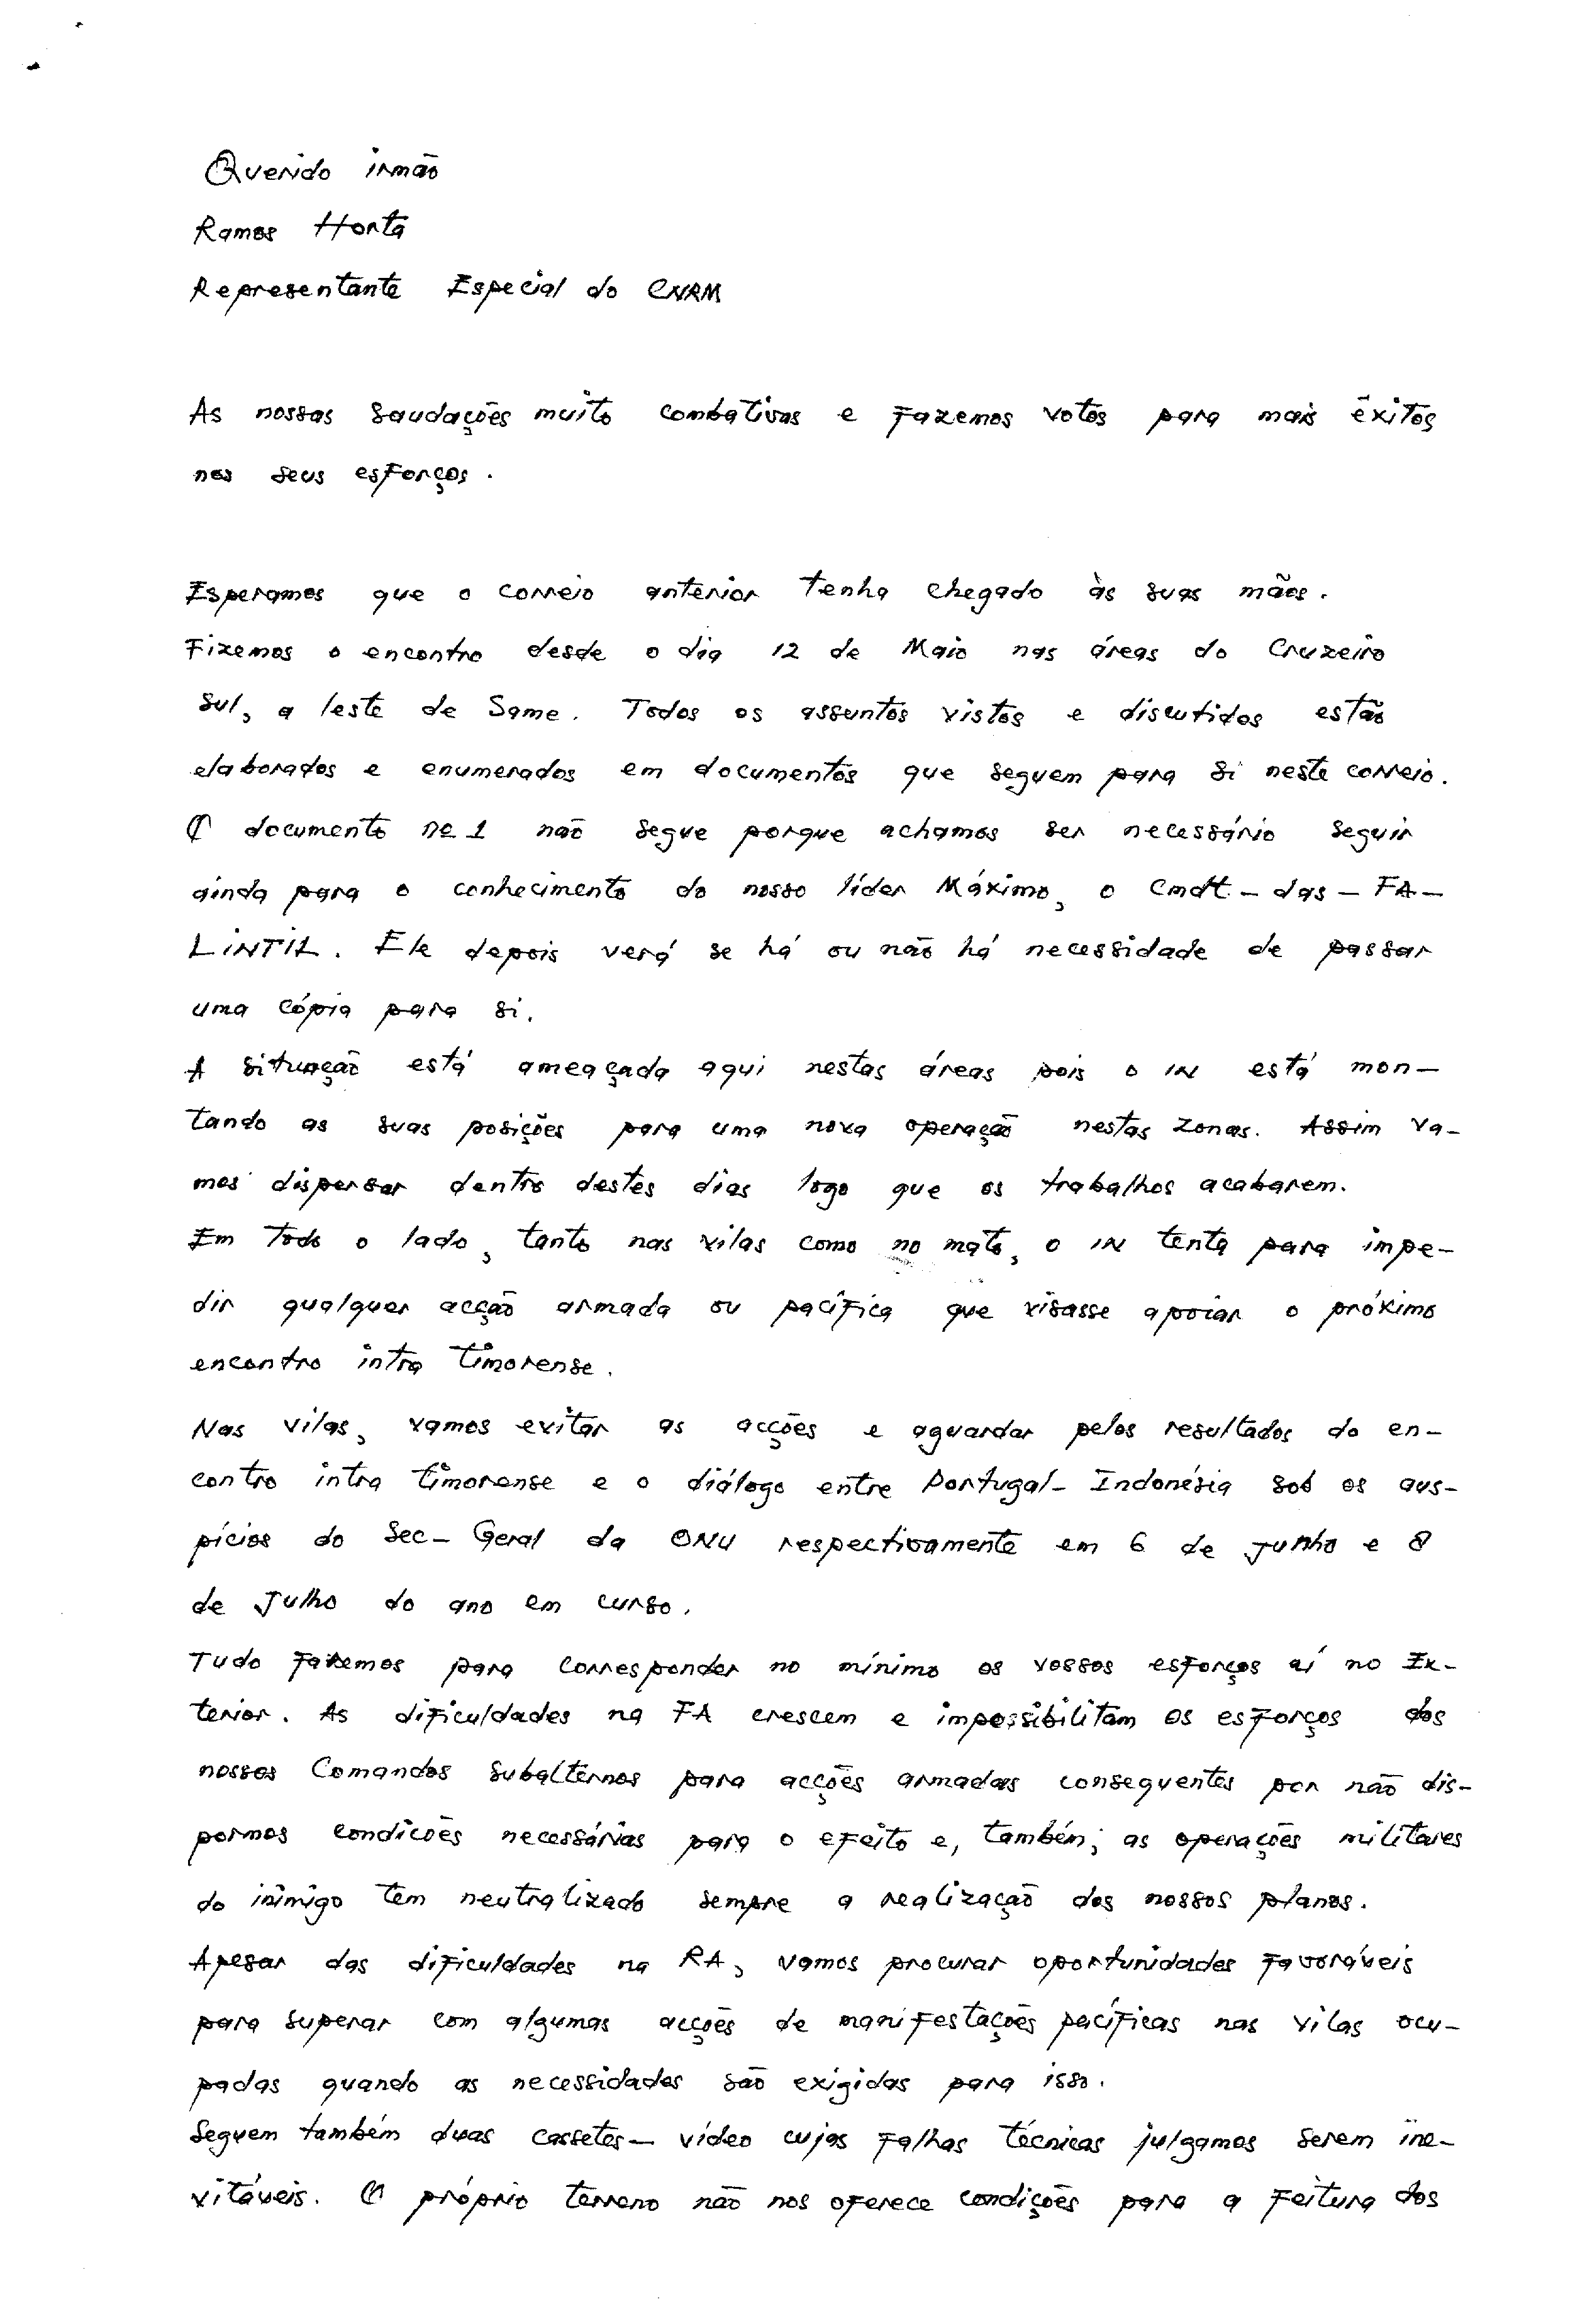 Querido irmão
Ramos Horta
Representante Especial do CNRM
As nossas saudações muito combativas e fazemos votos para mais êxitos
nos seus esforços.
Esperamos que o correio anterior tenha chegado às suas mãos.
Fizemos o encontro desde o dia 12 de Maio nas áreas do Cruzeiro
Sul, a leste de Same. Todos os assuntos vistos e discutidos estão
elaborados e enumerados em documentos que seguem para si neste correio.
O documento nº 1 não segue porque achamos ser necessário seguir
ainda para o conhecimento do nosso líder Máximo, o Cmdt-das-FA-
LINTIL. Ele depois verá se há ou não há necessidade de passar
uma cópia para si.
A situação está ameaçada aqui nestas áreas pois o IN está mon-
tando as suas posições para uma nova operação nestas zonas. Assim va-
mos dispersar dentro destes dias logo que os trabalhos acabarem.
Em todo o lado, tanto nas vilas como no mato, o IN tenta para impe-
dir qualquer acção armada ou pacífica que visasse apoiar o próximo
encontro intra timorense.
Nas vilas, vamos evitar as acções e aguardar pelos resultados do en-
contro intra timorense e o diálogo entre Portugal-Indonésia sob os aus-
pícios do Sec-Geral da ONU respectivamente em 6 de Junho e 8
de Julho do ano em curso.
Tudo faremos para corresponder no mínimo os vossos esforços aí no Ex-
terior. As dificuldades na FA crescem e impossibilitam os esforços dos
nossos Comandos subalternos para acções armadas consequentes por não dis-
pormos condicões necessárias para o efeito e, também, as operações militares
do inimigo tem neutralizado sempre a realização dos nossos planos.
Apesar das dificuldades na RA, vamos procurar oportunidades favoráveis
para superar com algumas acções de manifestações pacíficas nas vilas ocu-
padas quando as necessidades são exigidas para isso.
Seguem também duas cassetes-vídeo cujas falhas técnicas julgamos serem ine-
vitáveis. O próprio terreno não nos oferece condições para a feitura dos